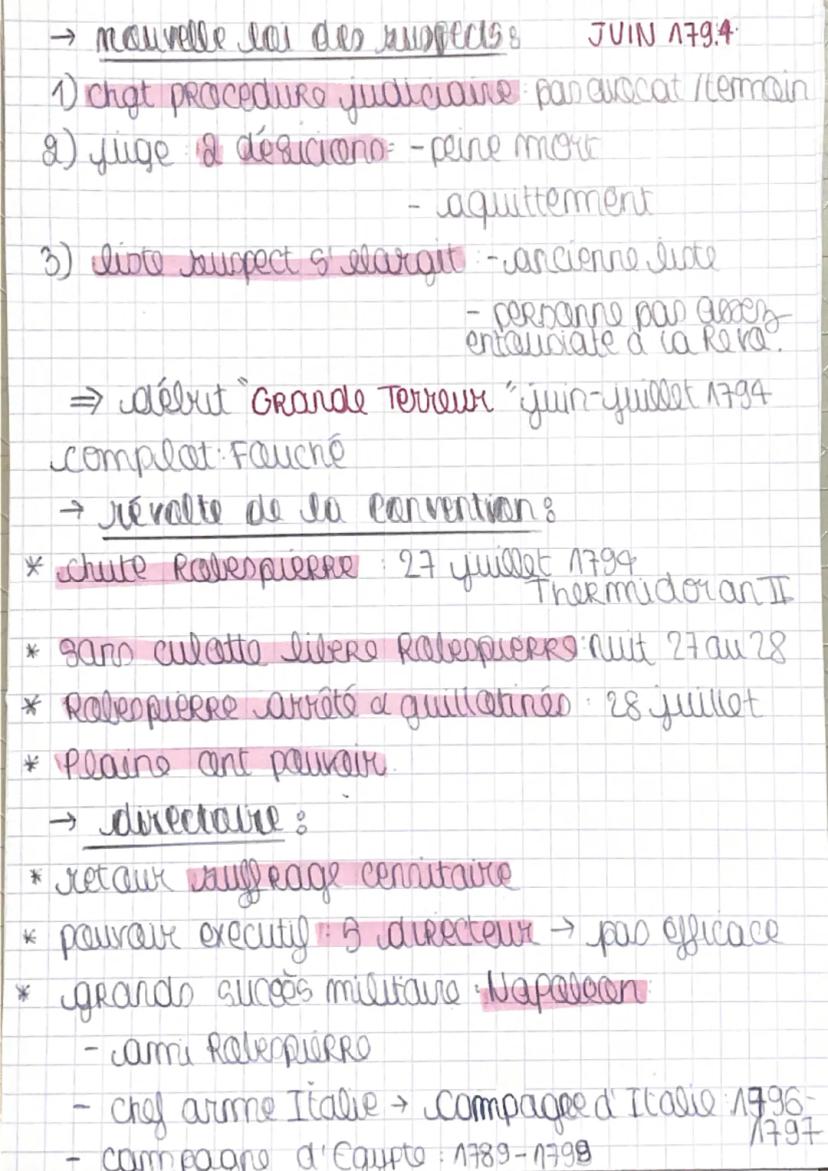 → nouvelle loi des suspects : JUIN 1794
1) chgt procedure judiciaire : pas avocat / temoin
2) juge : 2 désicions = - peine mort
- aquittement
3) liste suspect s'elargit : - ancienne liste
- personne pas assez
entousiate à la Révo.
⇒ début "Grande Terreur" juin-juillet 1794
complot : Fouché
→ révolte de la Convention :
* chute Robespierre : 27 juillet 1794
Thermidor an II
* sans culotte libere Robespierre : nuit 27 au 28
* Robespierre arrêté a guillotinés : 28 juillet
* Plaine ont pouvoir
→ directoire :
* retour suffrage censitaire
* pouvoir executif : 5 directeur → pas efficace
* grands succès militaire : Napoleon
- ami Robespierre
- chef arme Italie → compagne d'Italie : 1796-
1797
- campagne d'Egypte : 1789-1799